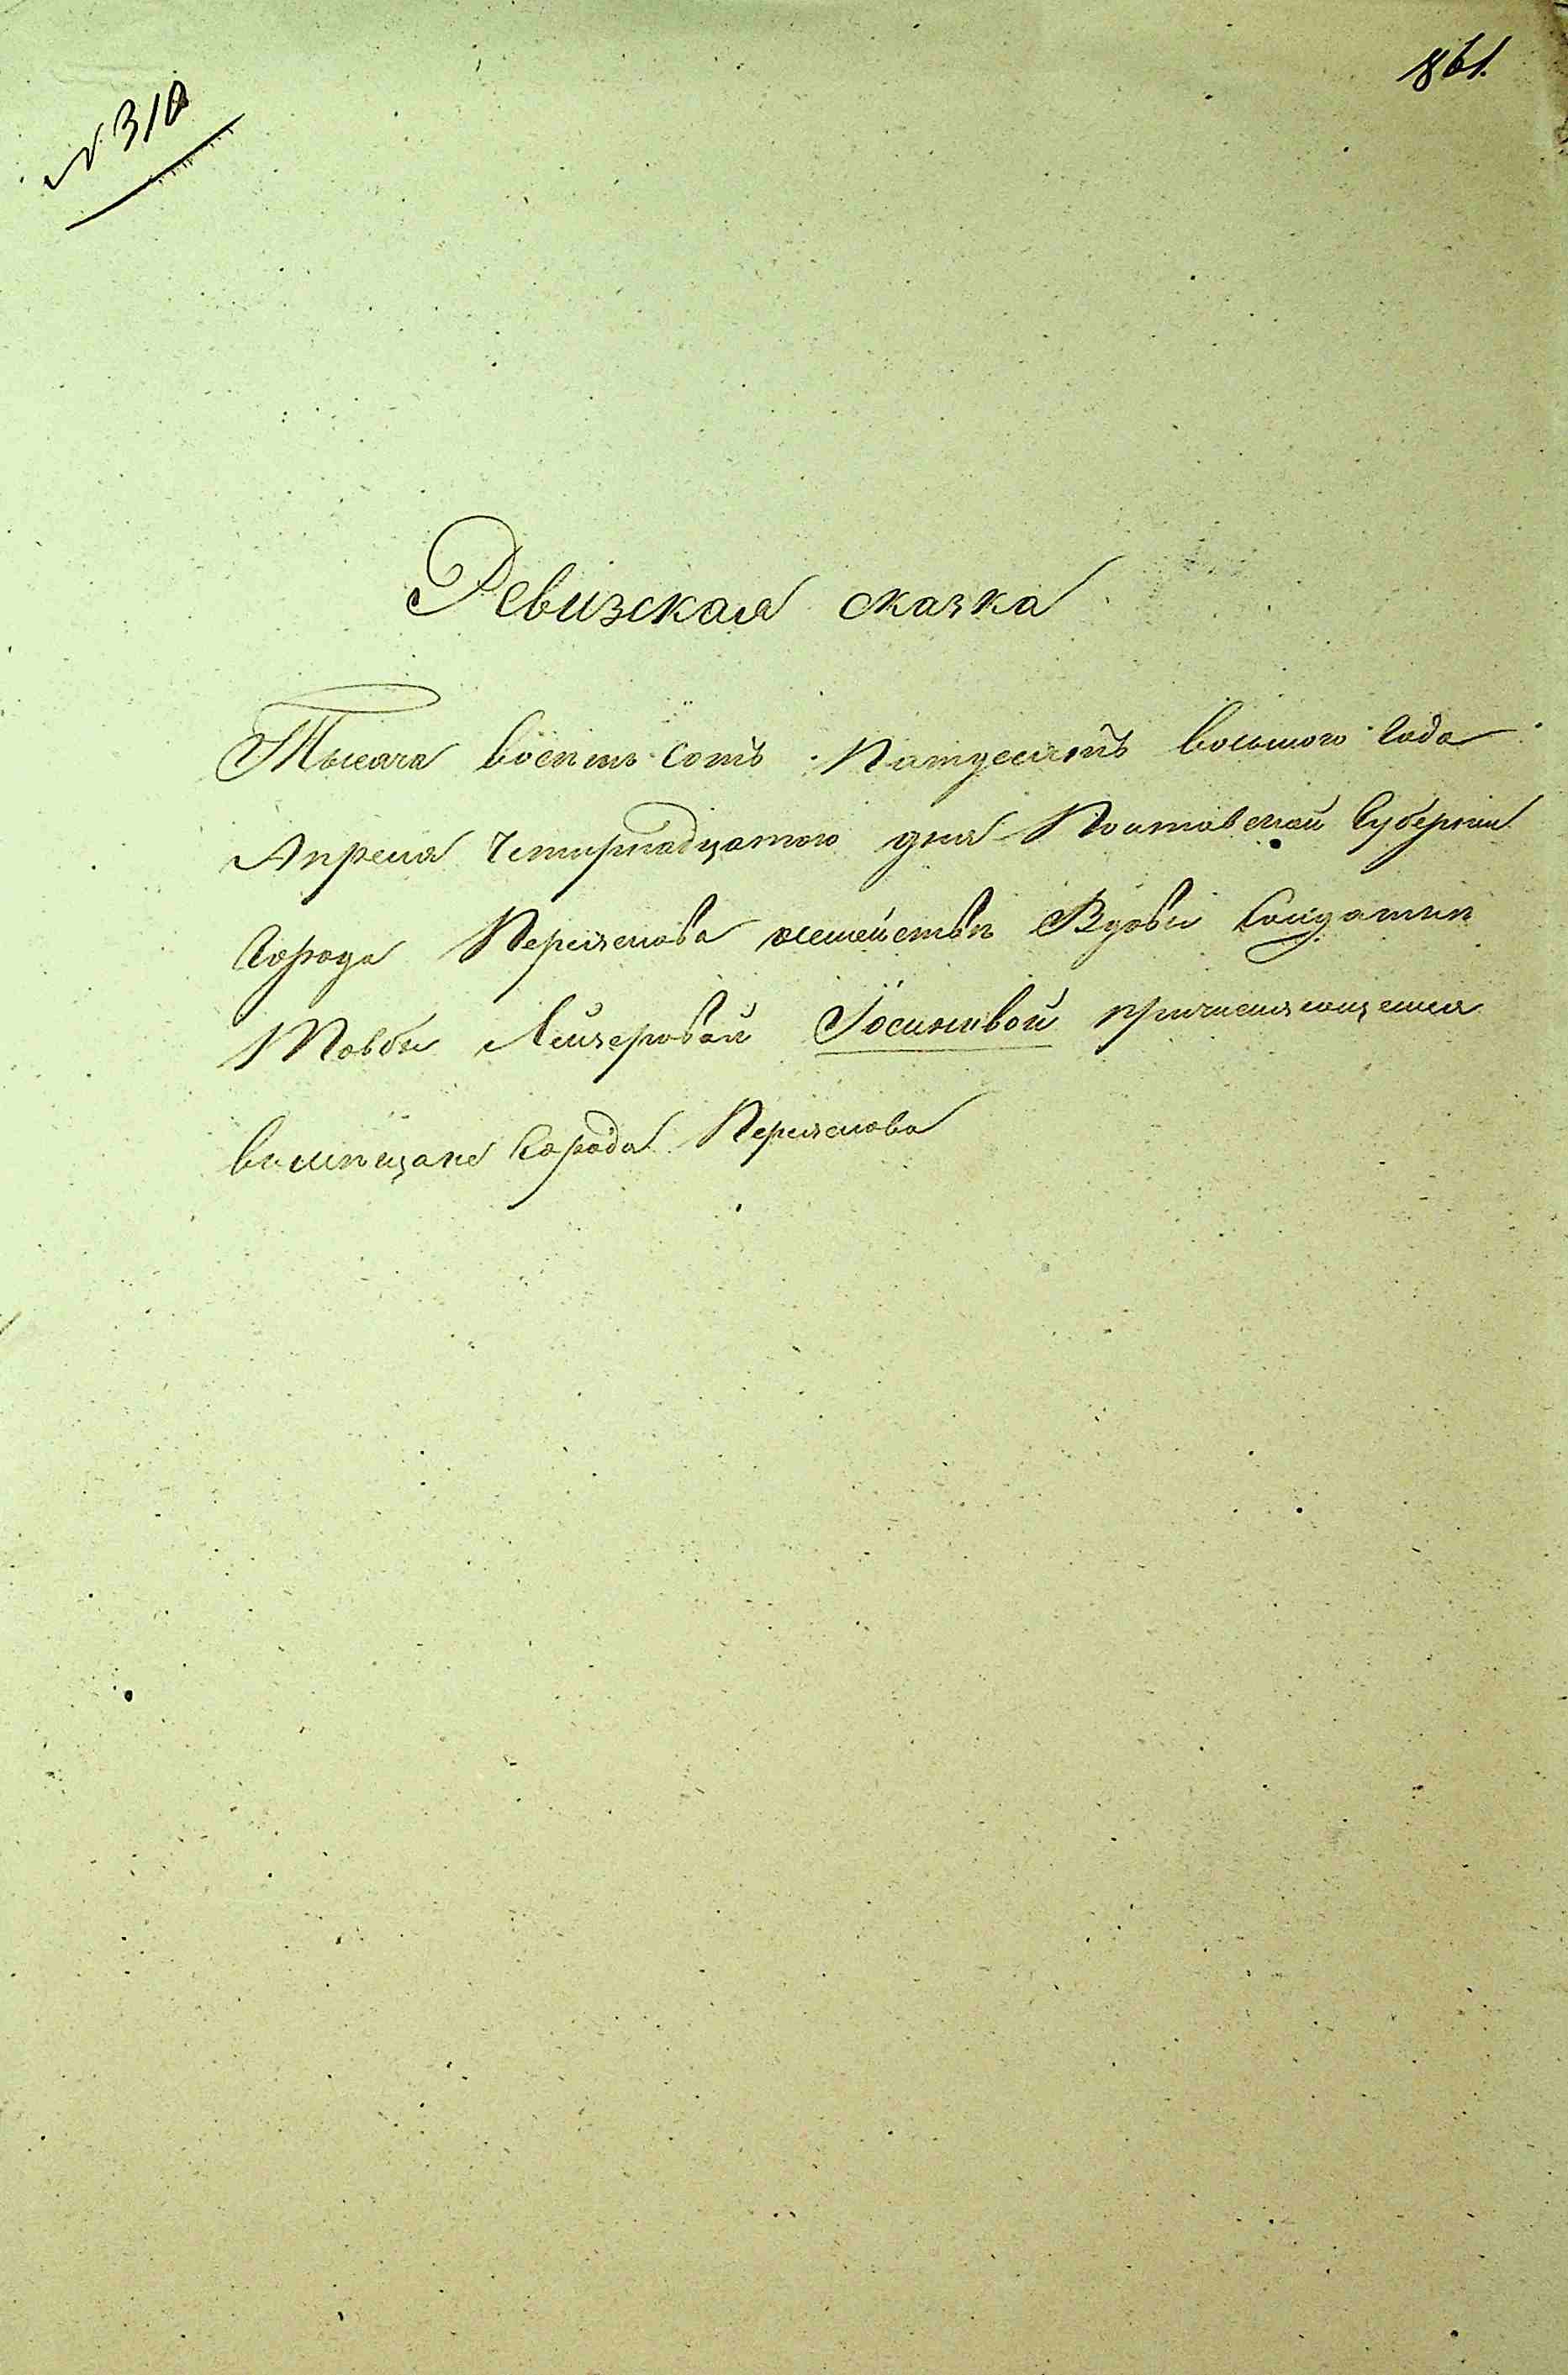 № 310
861.
Ревизская сказка
Тысяча восемь сотъ Пятдесятъ восьмого Года
Апреля Четырнадцатого дня Полтавской Губернии
Города Переяслова семействѣ Вдовы Солдатки
Товбы Лейзеровой Іосиповой причисляющемся
вмѣщане Города Переяслова